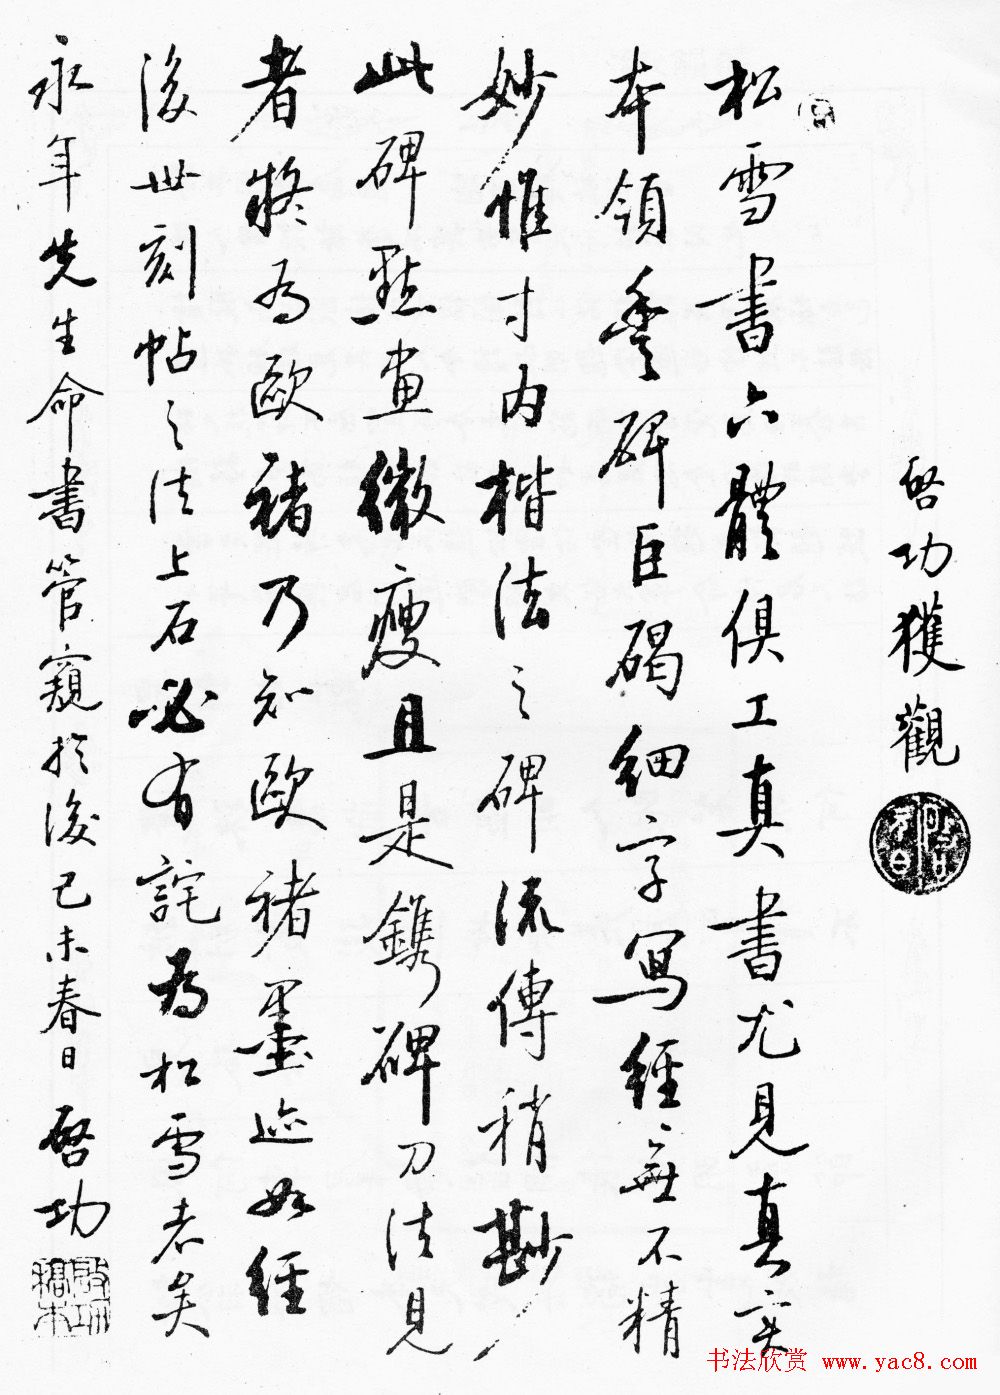 啓功獲觀
松雪書六體俱工真書尤見真實
本領豐碑巨碣細字寫經無不精
妙惟寸内楷法之碑流傳稍尠
此碑點畫微瘦且是鐫碑刀法見
者將為歐褚乃知歐褚墨迹如經
後世刻帖之法上石必有詫為松雪者矣
永年先生命書管窺於後己未春日啓功
书法欣赏 www.yac8.com